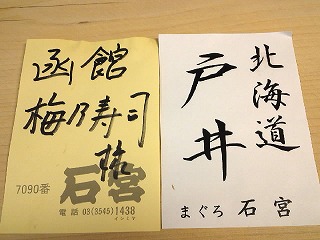 函館
梅乃寿司
様
石宮
7090番
電話 03(3545)1438
イシミヤ
北海道
戸井
まぐろ 石宮